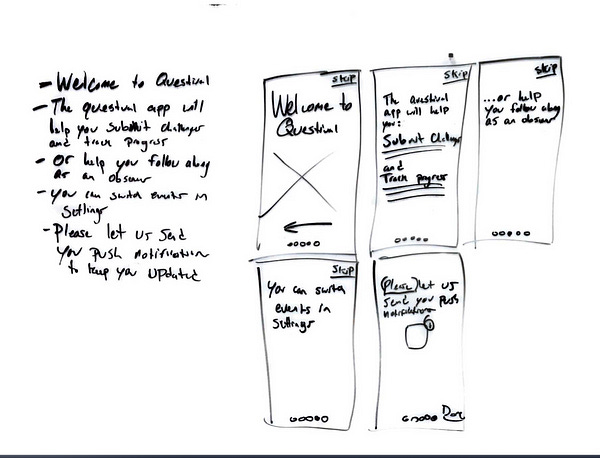 - Welcome to Questival
- The questival app will
help you submit challenges
and track progress
- Or help you follow along
as an observer
- You can switch events in
Settings
- Please let us send
you push notification
to keep you updated
Skip
Welcome to
Questival
Skip
The questival
app will help
you:
Submit Challenges
and
Track progress
Skip
...or help
you follow along
as an observer
Skip
You can switch
events in
Settings
Please let us
send you push
notifications
Done